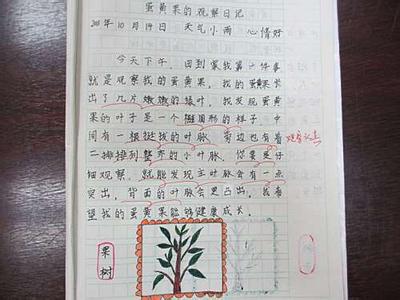 蛋黄果的观察日记
年10月19日 天气小雨 心情好
今天下午,回到家我第一件事
就是观察我的蛋黄果,我的蛋黄果长
出了几片嫩嫩的绿叶,我发现蛋黄
果的叶子是一个椭圆形的样子,中
间有一根挺拔的叶脉,旁边也有着
二排排列整齐的小叶脉,你要是仔
细观察,就能发现主叶脉会有一点
突出,背面的叶脉会是凸出,我希
望我的蛋黄果能够健康成长。
果树